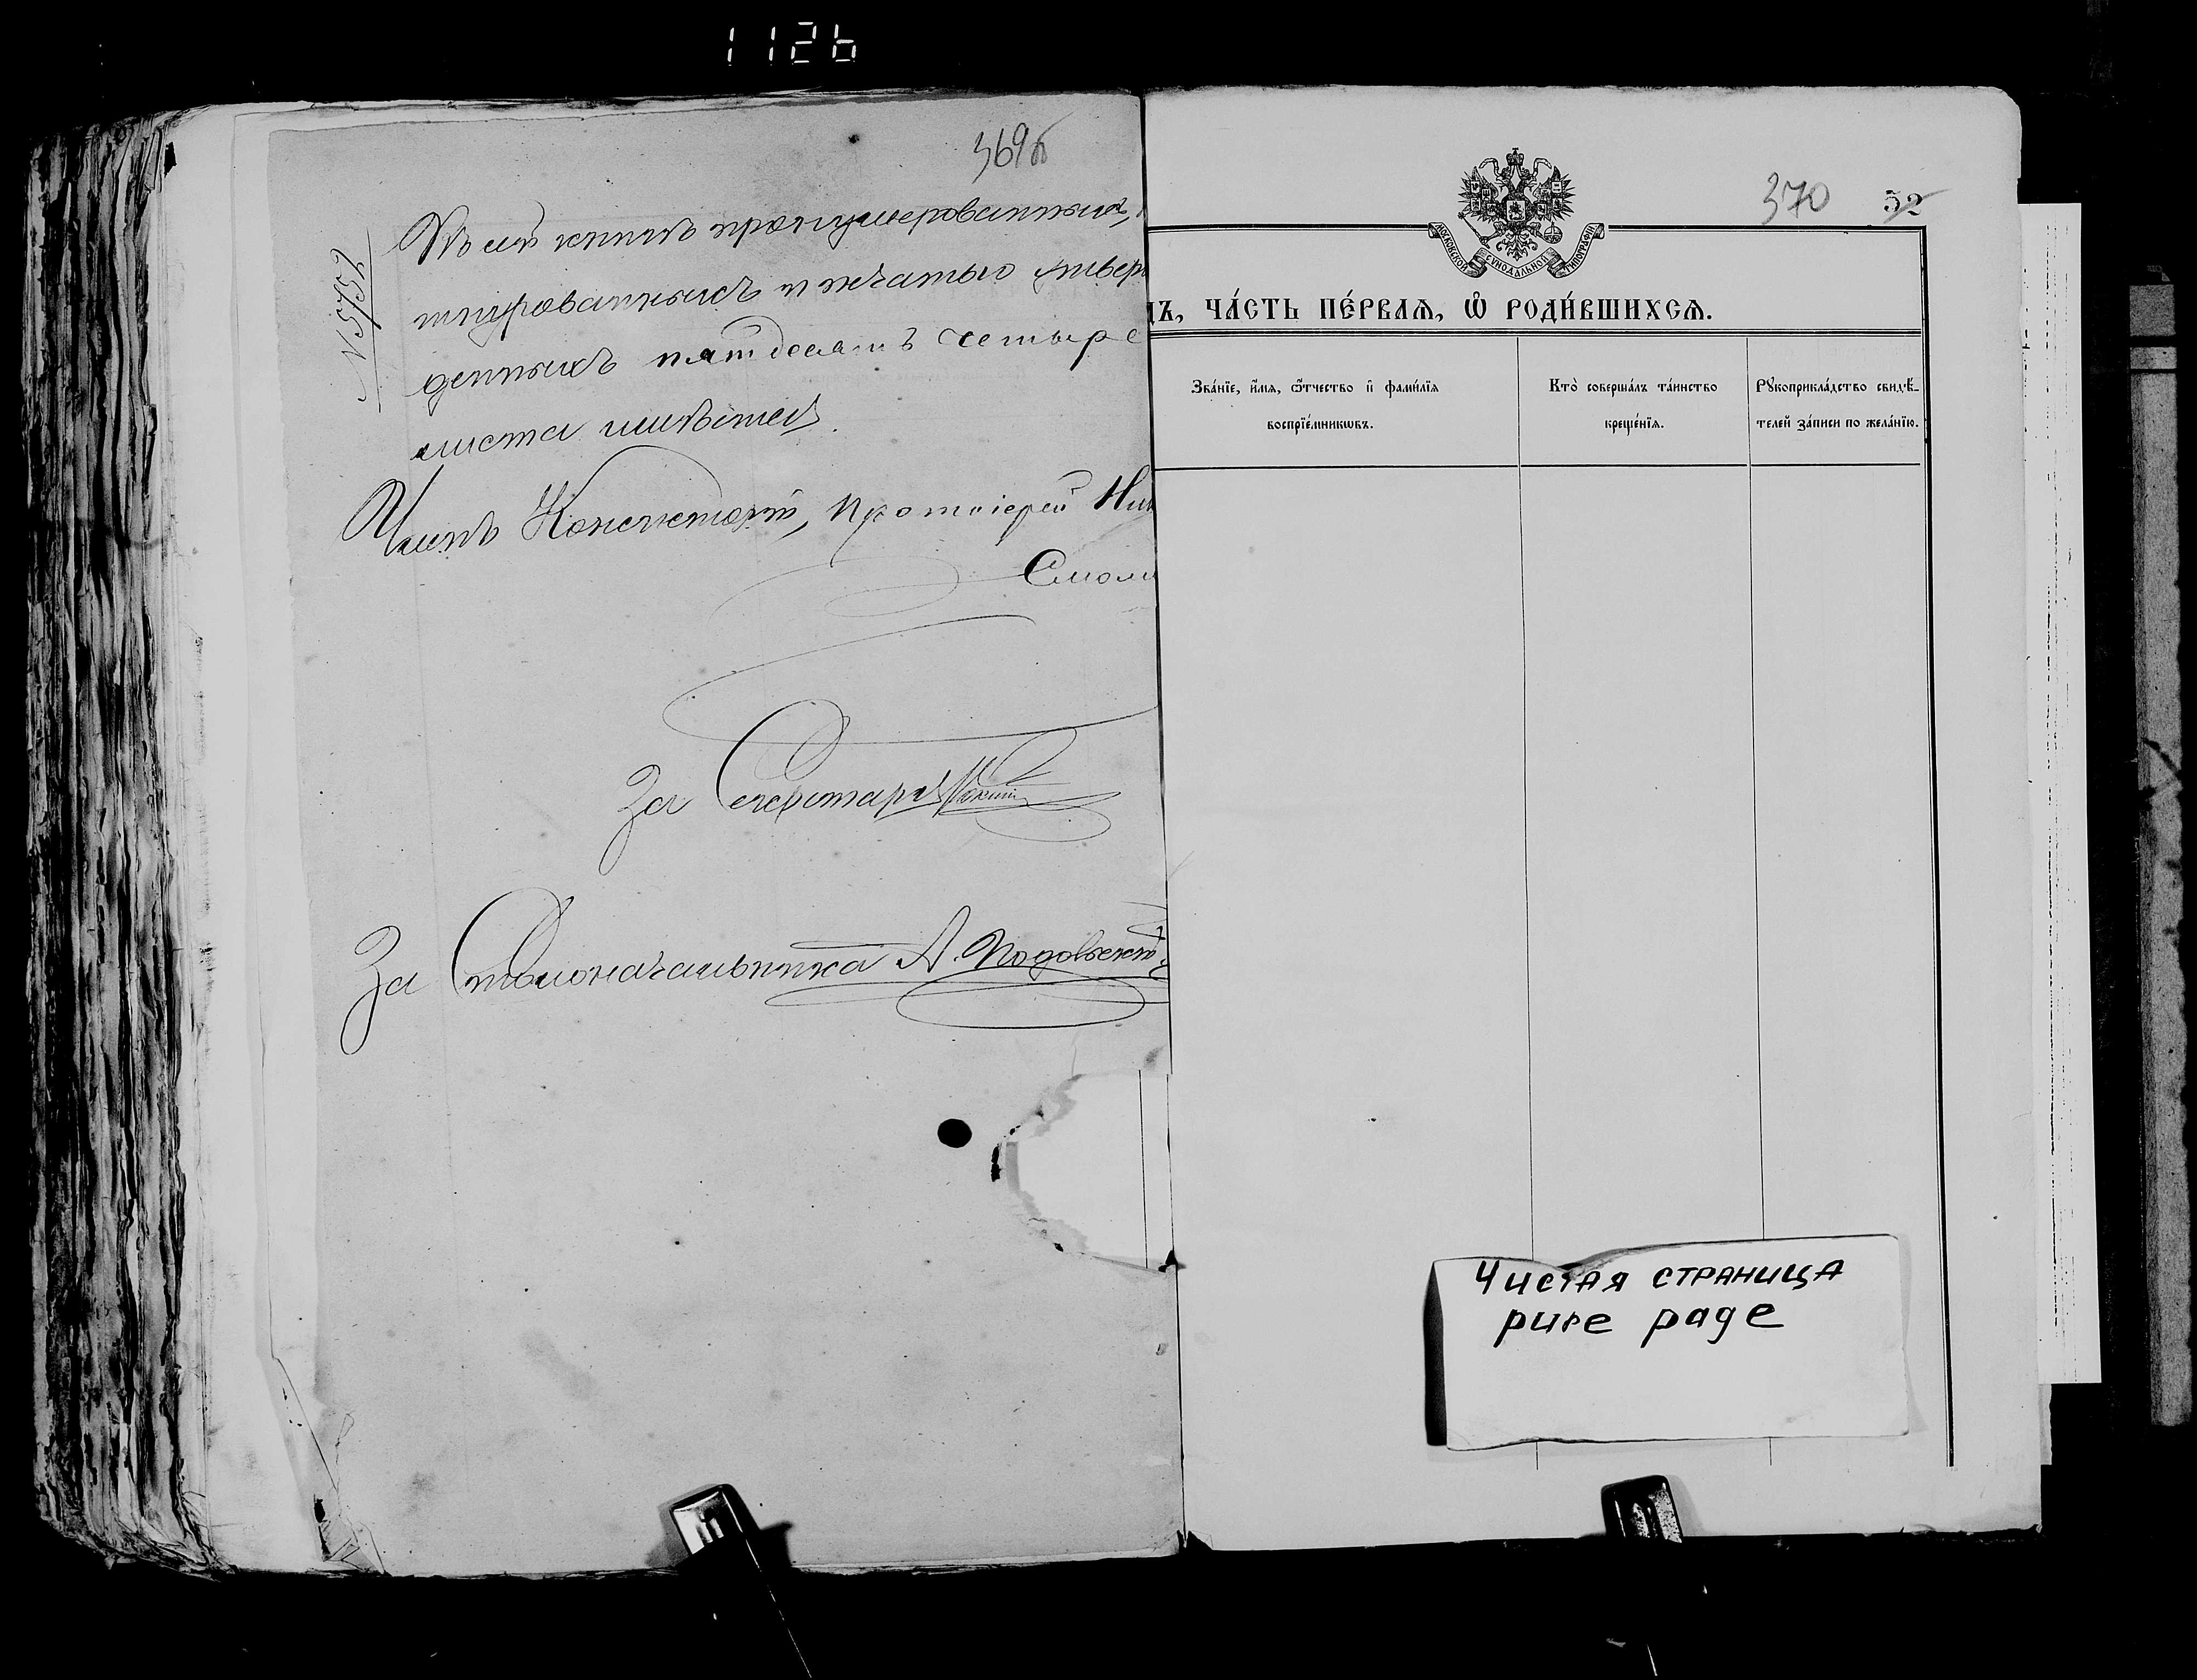 1126
369б
№ 5752
Въ сей книгѣ пронумерованныхъ,
шнурованныхъ и печатью утверж
денныхъ пятьдесятъ четыре
листа имѣется.
Членъ Консисторіи, Протоіерей Ник
Смол
За Секретаря
За Столоначальника А.
370 52
МОСКОВСКОЙ СѴНОДАЛЬНОЙ ТИПОГРАФІИ
дъ, ча́сть пе́рваѧ, ѡ҆ роди́вшихсѧ.
Зва́нїе, и҆́мѧ, ѻ҆́тчество и҆ фами́лїѧ
воспрїе́мникѡвъ.
Кто̀ соверша́лъ та́инство
креще́нїѧ.
Рꙋкоприкла́дство свидѣ́-
телей за́писи по жела́нїю.
Чистая страница
pure page